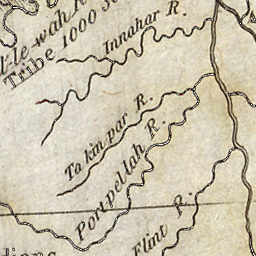 l-le-wah
Tribe 1000
Innahar R.
Takinpar R.
Porpellah R.
Flint R.